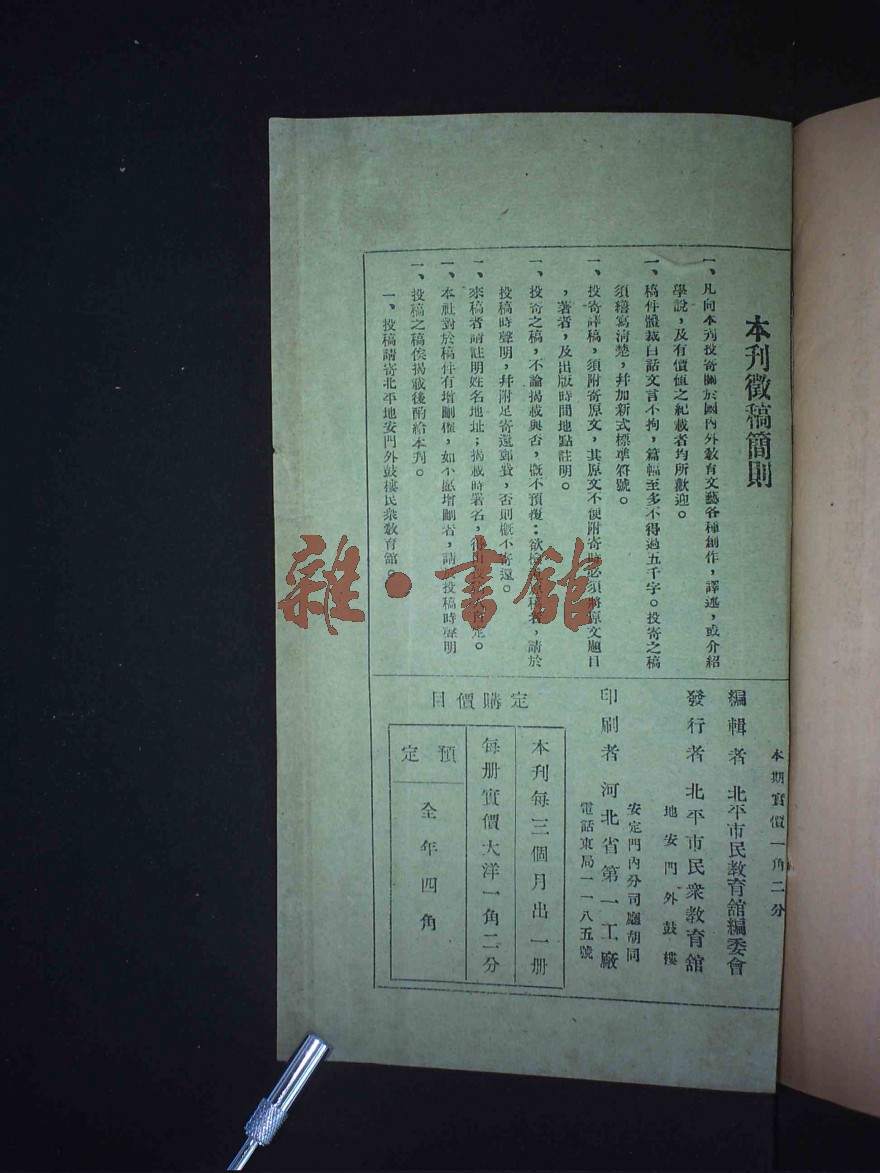 本刊徵稿簡則
一、凡向本刋投寄關於國內外敎育文藝各種創作，譯述，或介紹
學說，及有價値之紀載者均所歡迎。
一、稿件體裁白話文言不拘，篇幅至多不得過五千字。投寄之稿
須繕寫淸楚，幷加新式標準符號。
一、投寄譯稿，須附寄原文，其原文不便附寄時必須將原文題目
，著者，及出版時間地點註明。
一、投寄之稿，不論揭載與否，槪不預復：欲檢還原稿者，請於
投稿時聲明，幷附足寄還郵費，否則槪不寄還。
一、來稿者請註明姓名地址；揭載時署名，定。
一、本社對於稿件有增刪權，如不愿增刪者，請於投稿時聲明
一、投稿之稿俟揭載後酌給本刋。
一、投稿請寄北平地安門外鼓樓民衆敎育館。
本期實價一角二分
編輯者 北平市民敎育館編委會
發行者 北平市民衆敎育館
地安門外鼓樓
印刷者 河北省第一工廠
安定門內分司廳胡同
電話東局一一八五號
定購價目
本刋每三個月出一册
每册實價大洋一角二分
預定
全年四角
雜·書館